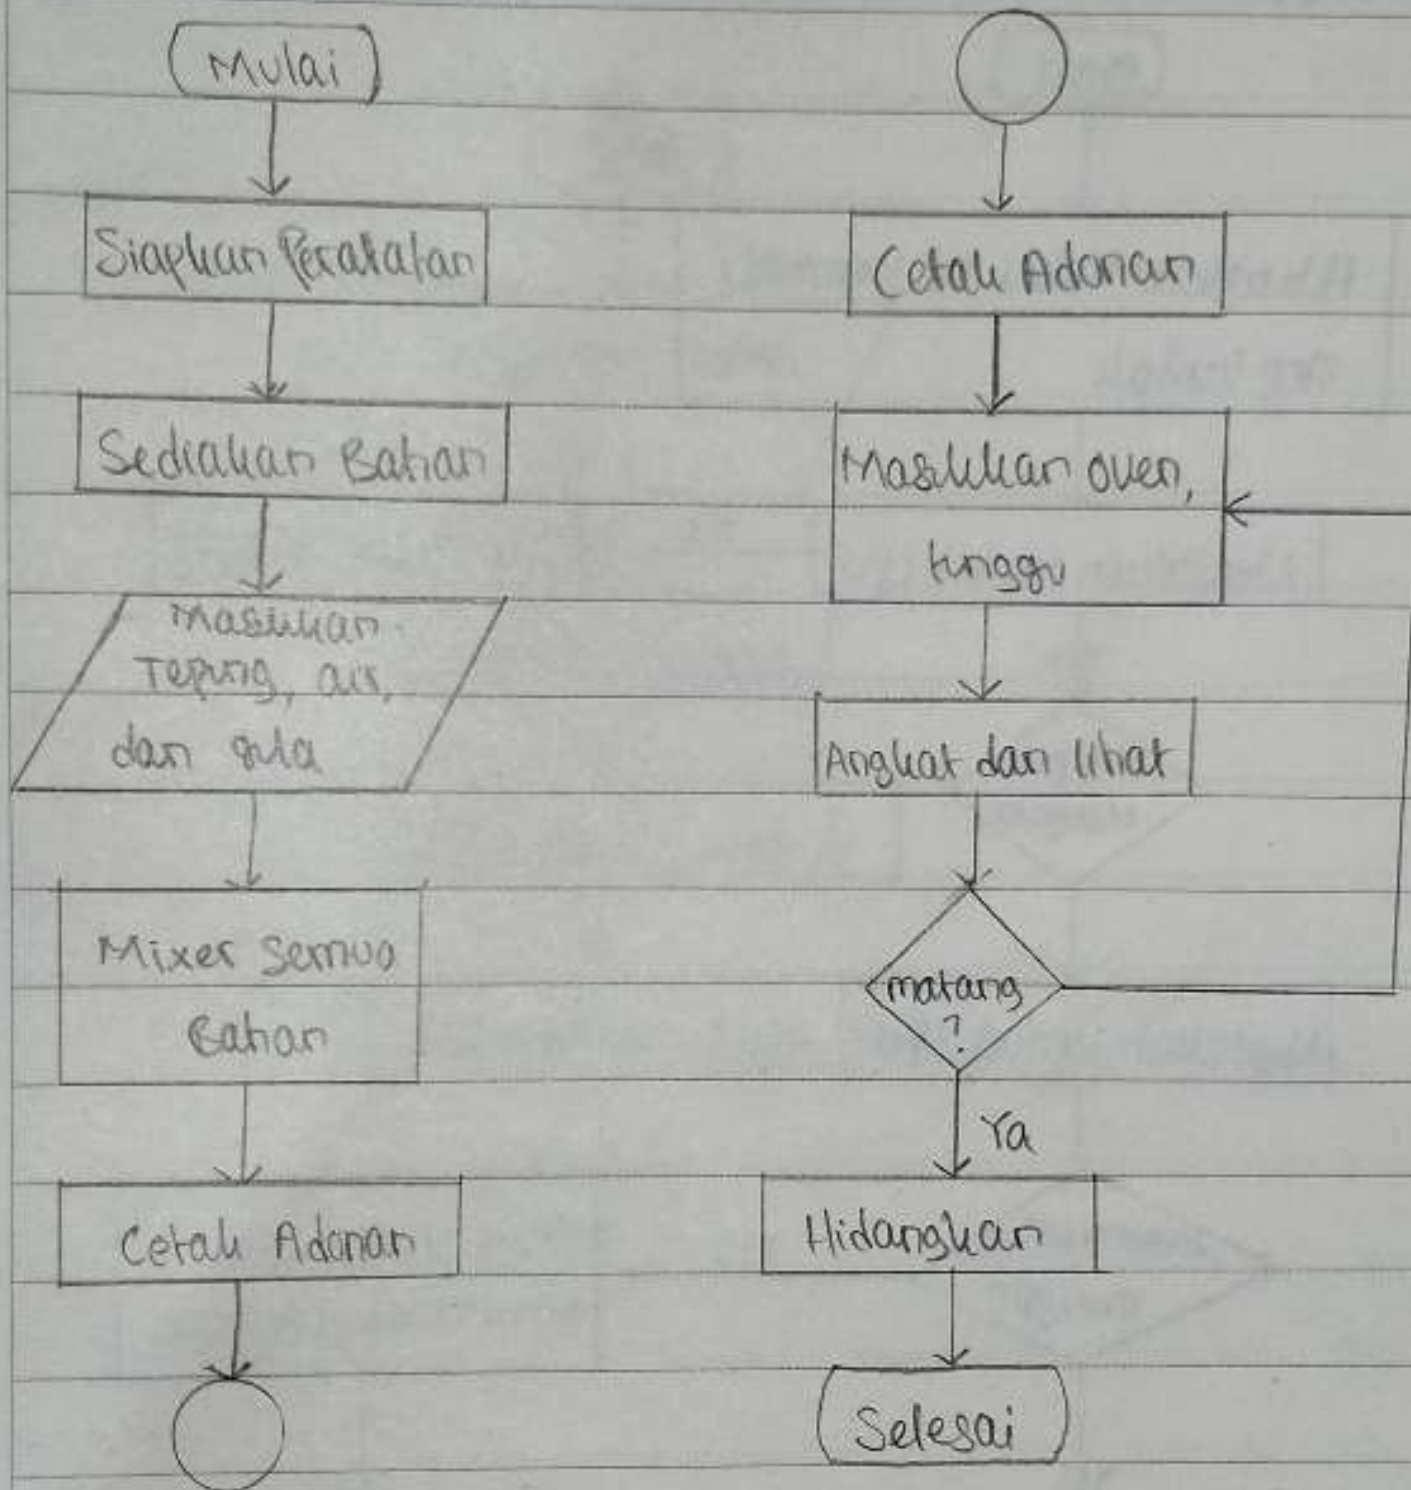 Mulai
Siapkan Peralatan
Sediakan Bahan
Masukkan
Tepung, air,
dan gula
Mixer semua
Bahan
Cetak Adonan
Cetak Adonan
Masukkan oven,
tunggu
Angkat dan lihat
matang
?
Ya
Hidangkan
Selesai